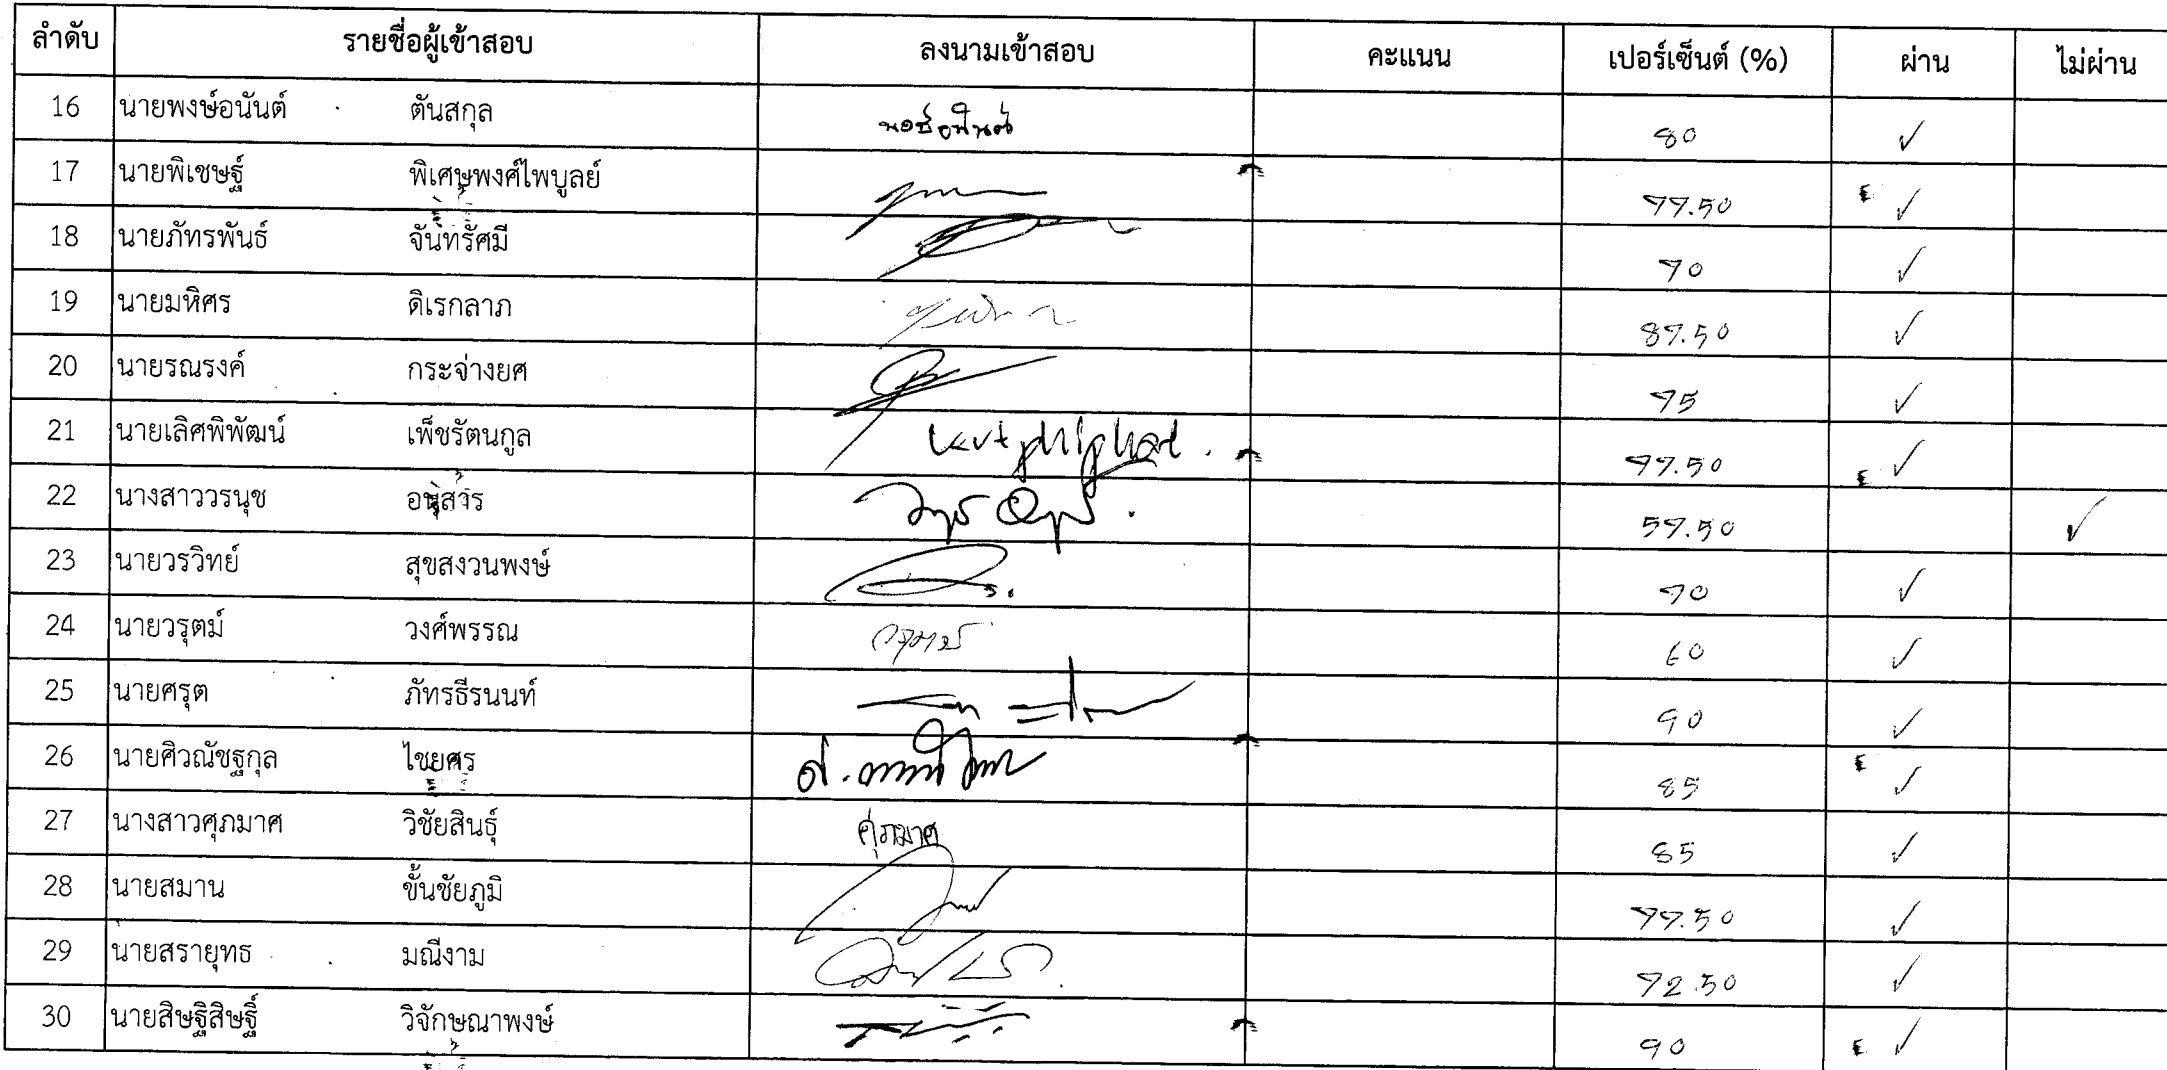 ลำดับ รายชื่อผู้เข้าสอบ ลงนามเข้าสอบ คะแนน เปอร์เซ็นต์ (%) ผ่าน ไม่ผ่าน
16 นายพงษ์อนันต์ ตันสกุล 80 ✓
17 นายพิเชษฐ์ พิเศษพงศ์ไพบูลย์ 77.50 ✓
18 นายภัทรพันธ์ จันทรัศมี 70 ✓
19 นายมหิศร ดิเรกลาภ 87.50 ✓
20 นายรณรงค์ กระจ่างยศ 75 ✓
21 นายเลิศพิพัฒน์ เพ็ชรัตนกูล 77.50 ✓
22 นางสาววรนุช อนุสาร 57.50 ✓
23 นายวรวิทย์ สุขสงวนพงษ์ 70 ✓
24 นายวรุตม์ วงศ์พรรณ 60 ✓
25 นายศรุต ภัทรธีรนนท์ 90 ✓
26 นายศิวณัชฐกุล ไชยศร 85 ✓
27 นางสาวศุภมาศ วิชัยสินธุ์ ศุภมาศ 85 ✓
28 นายสมาน ขั้นชัยภูมิ 77.50 ✓
29 นายสรายุทธ มณีงาม 72.50 ✓
30 นายสิษฐิสิษฐิ์ วิจักษณาพงษ์ 90 ✓